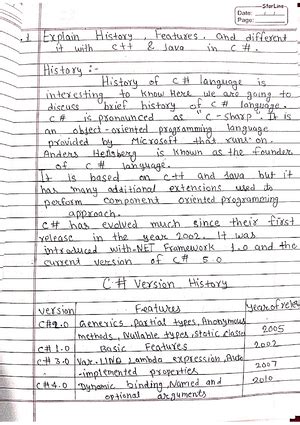 StarLine
Date:
Page:
1 Explain History, Features, and different
it with C++ & Java in C#.
History :-
History of C# language is
interesting to know. Here we are going to
discuss brief history of C# language.
C# is pronounced as "C-sharp". It is
an object-oriented programming language
provided by Microsoft that runs on
Anders Hejlsberg is known as the founder
of C# language.
It is based on C++ and Java but it
has many additional extensions used to
perform component oriented programming
approach.
C# has evolved much since their first
release in the year 2002. It was
introduced with .NET Framework 1.0 and the
current version of C# 5.0
C# Version History
version Features Year of
Generics, Partial types, Anonymous
methods, Nullable types, static class 2005
C# 1.0 Basic Features 2002
C# 3.0 Var, LINQ Lambda expression, Auto
-implemented properties 2007
C# 4.0 Dynamic binding, Named and 2010
optional arguments